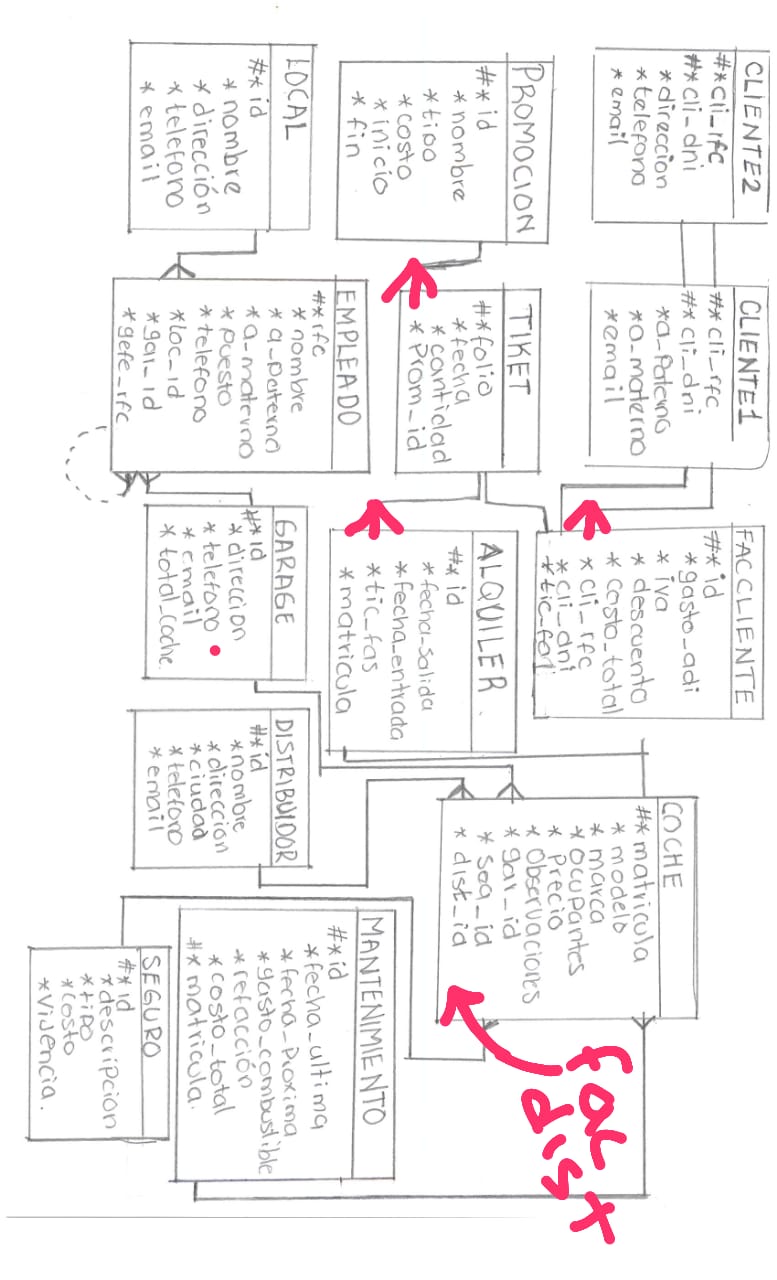 CLIENTE2
#* cli_rfc
#* cli_dni
* direccion
* telefono
* email
CLIENTE1
#* cli_rfc
#* cli_dni
* a_Paterno
* a_materno
* email
FACCLIENTE
#* id
* gasto_adi
* iva
* descuento
* casto_total
* cli_rfc
* cli_dni
* tic_fol
COCHE
#* matricula
* modelo
* marca
* ocupantes
* Precio
* Observaciones
* gar_id
* seg_id
* dist_id
fac
dist
PROMOCION
#* id
* nombre
* tipo
* costo
* inicio
* fin
TIKET
#* folio
* fecha
* cantidad
* Prom_id
ALQUILER.
#* id
* fecha-salida
* fecha_entrada
* tic_fas
* matricula
MANTENIMIENTO
#* id
* fecha_ultima
* fecha_Proxima
* gasto_combustible
* refacción
* costo_total
#* matricula.
LOCAL
#* id
* nombre
* dirección
* telefono
* email
EMPLEADO
#* rfc
* nombre
* a_paterno
* a_materno
* puesto
* telefono
* loc_id
* gar_id
* gefe_rfc
GARAGE
#* id
* direccion
* telefono
* email
* total_coche.
DISTRIBUIDOR
#* id
* nombre
* direccion
* ciudad
* telefono
* email
SEGURO
#* id
* descripcion
* tipo
* Costo
* Vijencia.